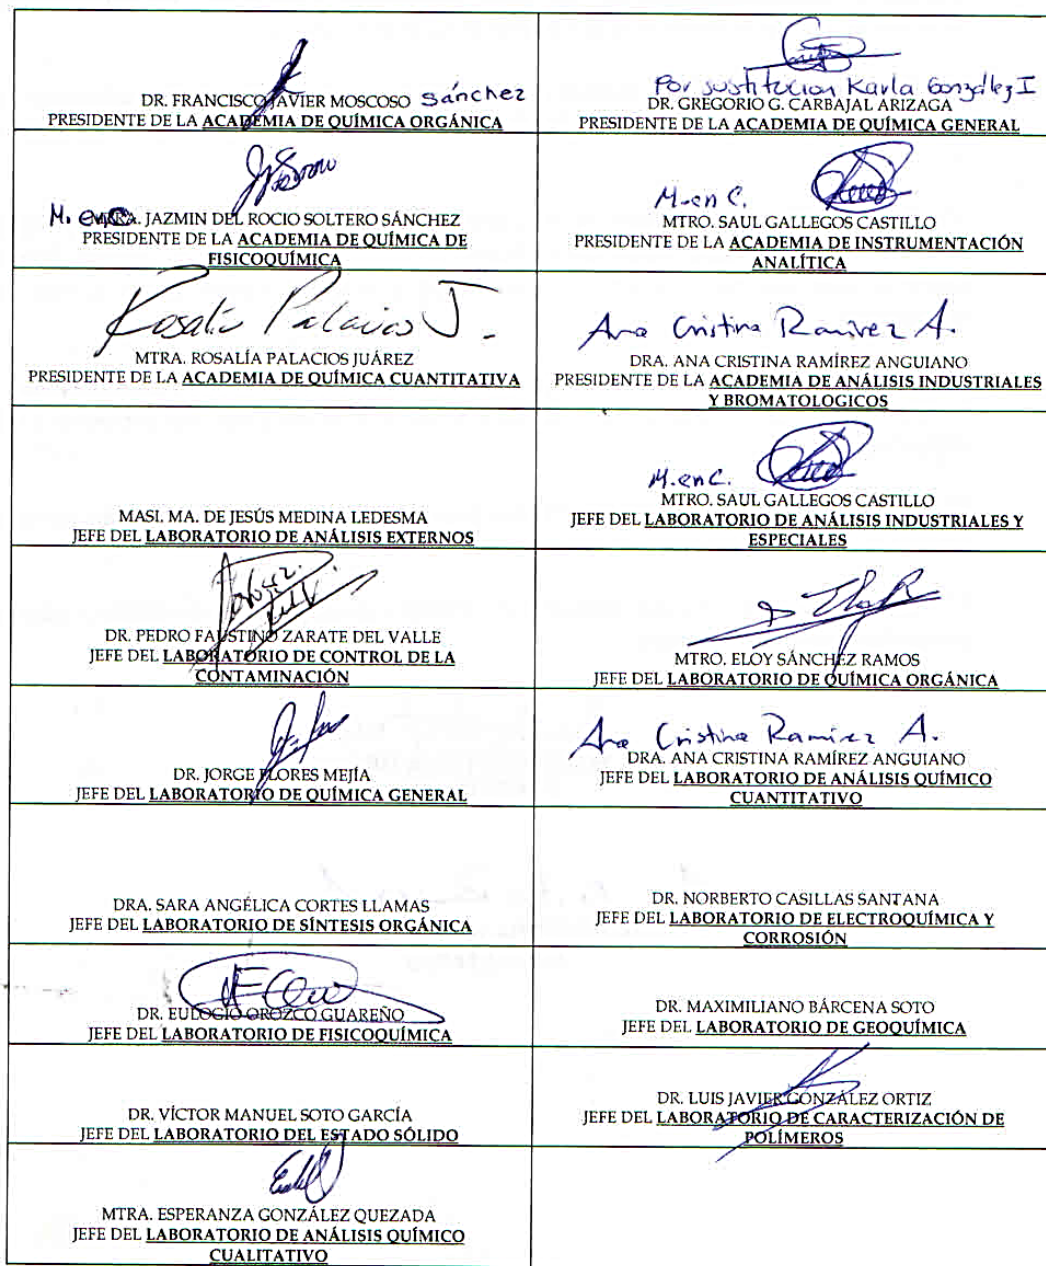 DR. FRANCISCO JAVIER MOSCOSO Sánchez
PRESIDENTE DE LA ACADEMIA DE QUÍMICA ORGÁNICA
Por sustitucion Karla González I
DR. GREGORIO G. CARBAJAL ARIZAGA
PRESIDENTE DE LA ACADEMIA DE QUÍMICA GENERAL
M. en C. MTRA. JAZMIN DEL ROCIO SOLTERO SÁNCHEZ
PRESIDENTE DE LA ACADEMIA DE QUÍMICA DE
FISICOQUÍMICA
M. en C.
MTRO. SAUL GALLEGOS CASTILLO
PRESIDENTE DE LA ACADEMIA DE INSTRUMENTACIÓN
ANALÍTICA
Rosalía Palacios J.
MTRA. ROSALÍA PALACIOS JUÁREZ
PRESIDENTE DE LA ACADEMIA DE QUÍMICA CUANTITATIVA
Ana Cristina Ramírez A.
DRA. ANA CRISTINA RAMÍREZ ANGUIANO
PRESIDENTE DE LA ACADEMIA DE ANÁLISIS INDUSTRIALES
Y BROMATOLOGICOS
MASI. MA. DE JESÚS MEDINA LEDESMA
JEFE DEL LABORATORIO DE ANÁLISIS EXTERNOS
M. en C.
MTRO. SAUL GALLEGOS CASTILLO
JEFE DEL LABORATORIO DE ANÁLISIS INDUSTRIALES Y
ESPECIALES
DR. PEDRO FAUSTINO ZARATE DEL VALLE
JEFE DEL LABORATORIO DE CONTROL DE LA
CONTAMINACIÓN
MTRO. ELOY SÁNCHEZ RAMOS
JEFE DEL LABORATORIO DE QUÍMICA ORGÁNICA
DR. JORGE FLORES MEJÍA
JEFE DEL LABORATORIO DE QUÍMICA GENERAL
Ana Cristina Ramírez A.
DRA. ANA CRISTINA RAMÍREZ ANGUIANO
JEFE DEL LABORATORIO DE ANÁLISIS QUÍMICO
CUANTITATIVO
DRA. SARA ANGÉLICA CORTES LLAMAS
JEFE DEL LABORATORIO DE SÍNTESIS ORGÁNICA
DR. NORBERTO CASILLAS SANTANA
JEFE DEL LABORATORIO DE ELECTROQUÍMICA Y
CORROSIÓN
DR. EULOGIO OROZCO GUAREÑO
JEFE DEL LABORATORIO DE FISICOQUÍMICA
DR. MAXIMILIANO BÁRCENA SOTO
JEFE DEL LABORATORIO DE GEOQUÍMICA
DR. VÍCTOR MANUEL SOTO GARCÍA
JEFE DEL LABORATORIO DEL ESTADO SÓLIDO
DR. LUIS JAVIER GONZÁLEZ ORTIZ
JEFE DEL LABORATORIO DE CARACTERIZACIÓN DE
POLÍMEROS
MTRA. ESPERANZA GONZÁLEZ QUEZADA
JEFE DEL LABORATORIO DE ANÁLISIS QUÍMICO
CUALITATIVO